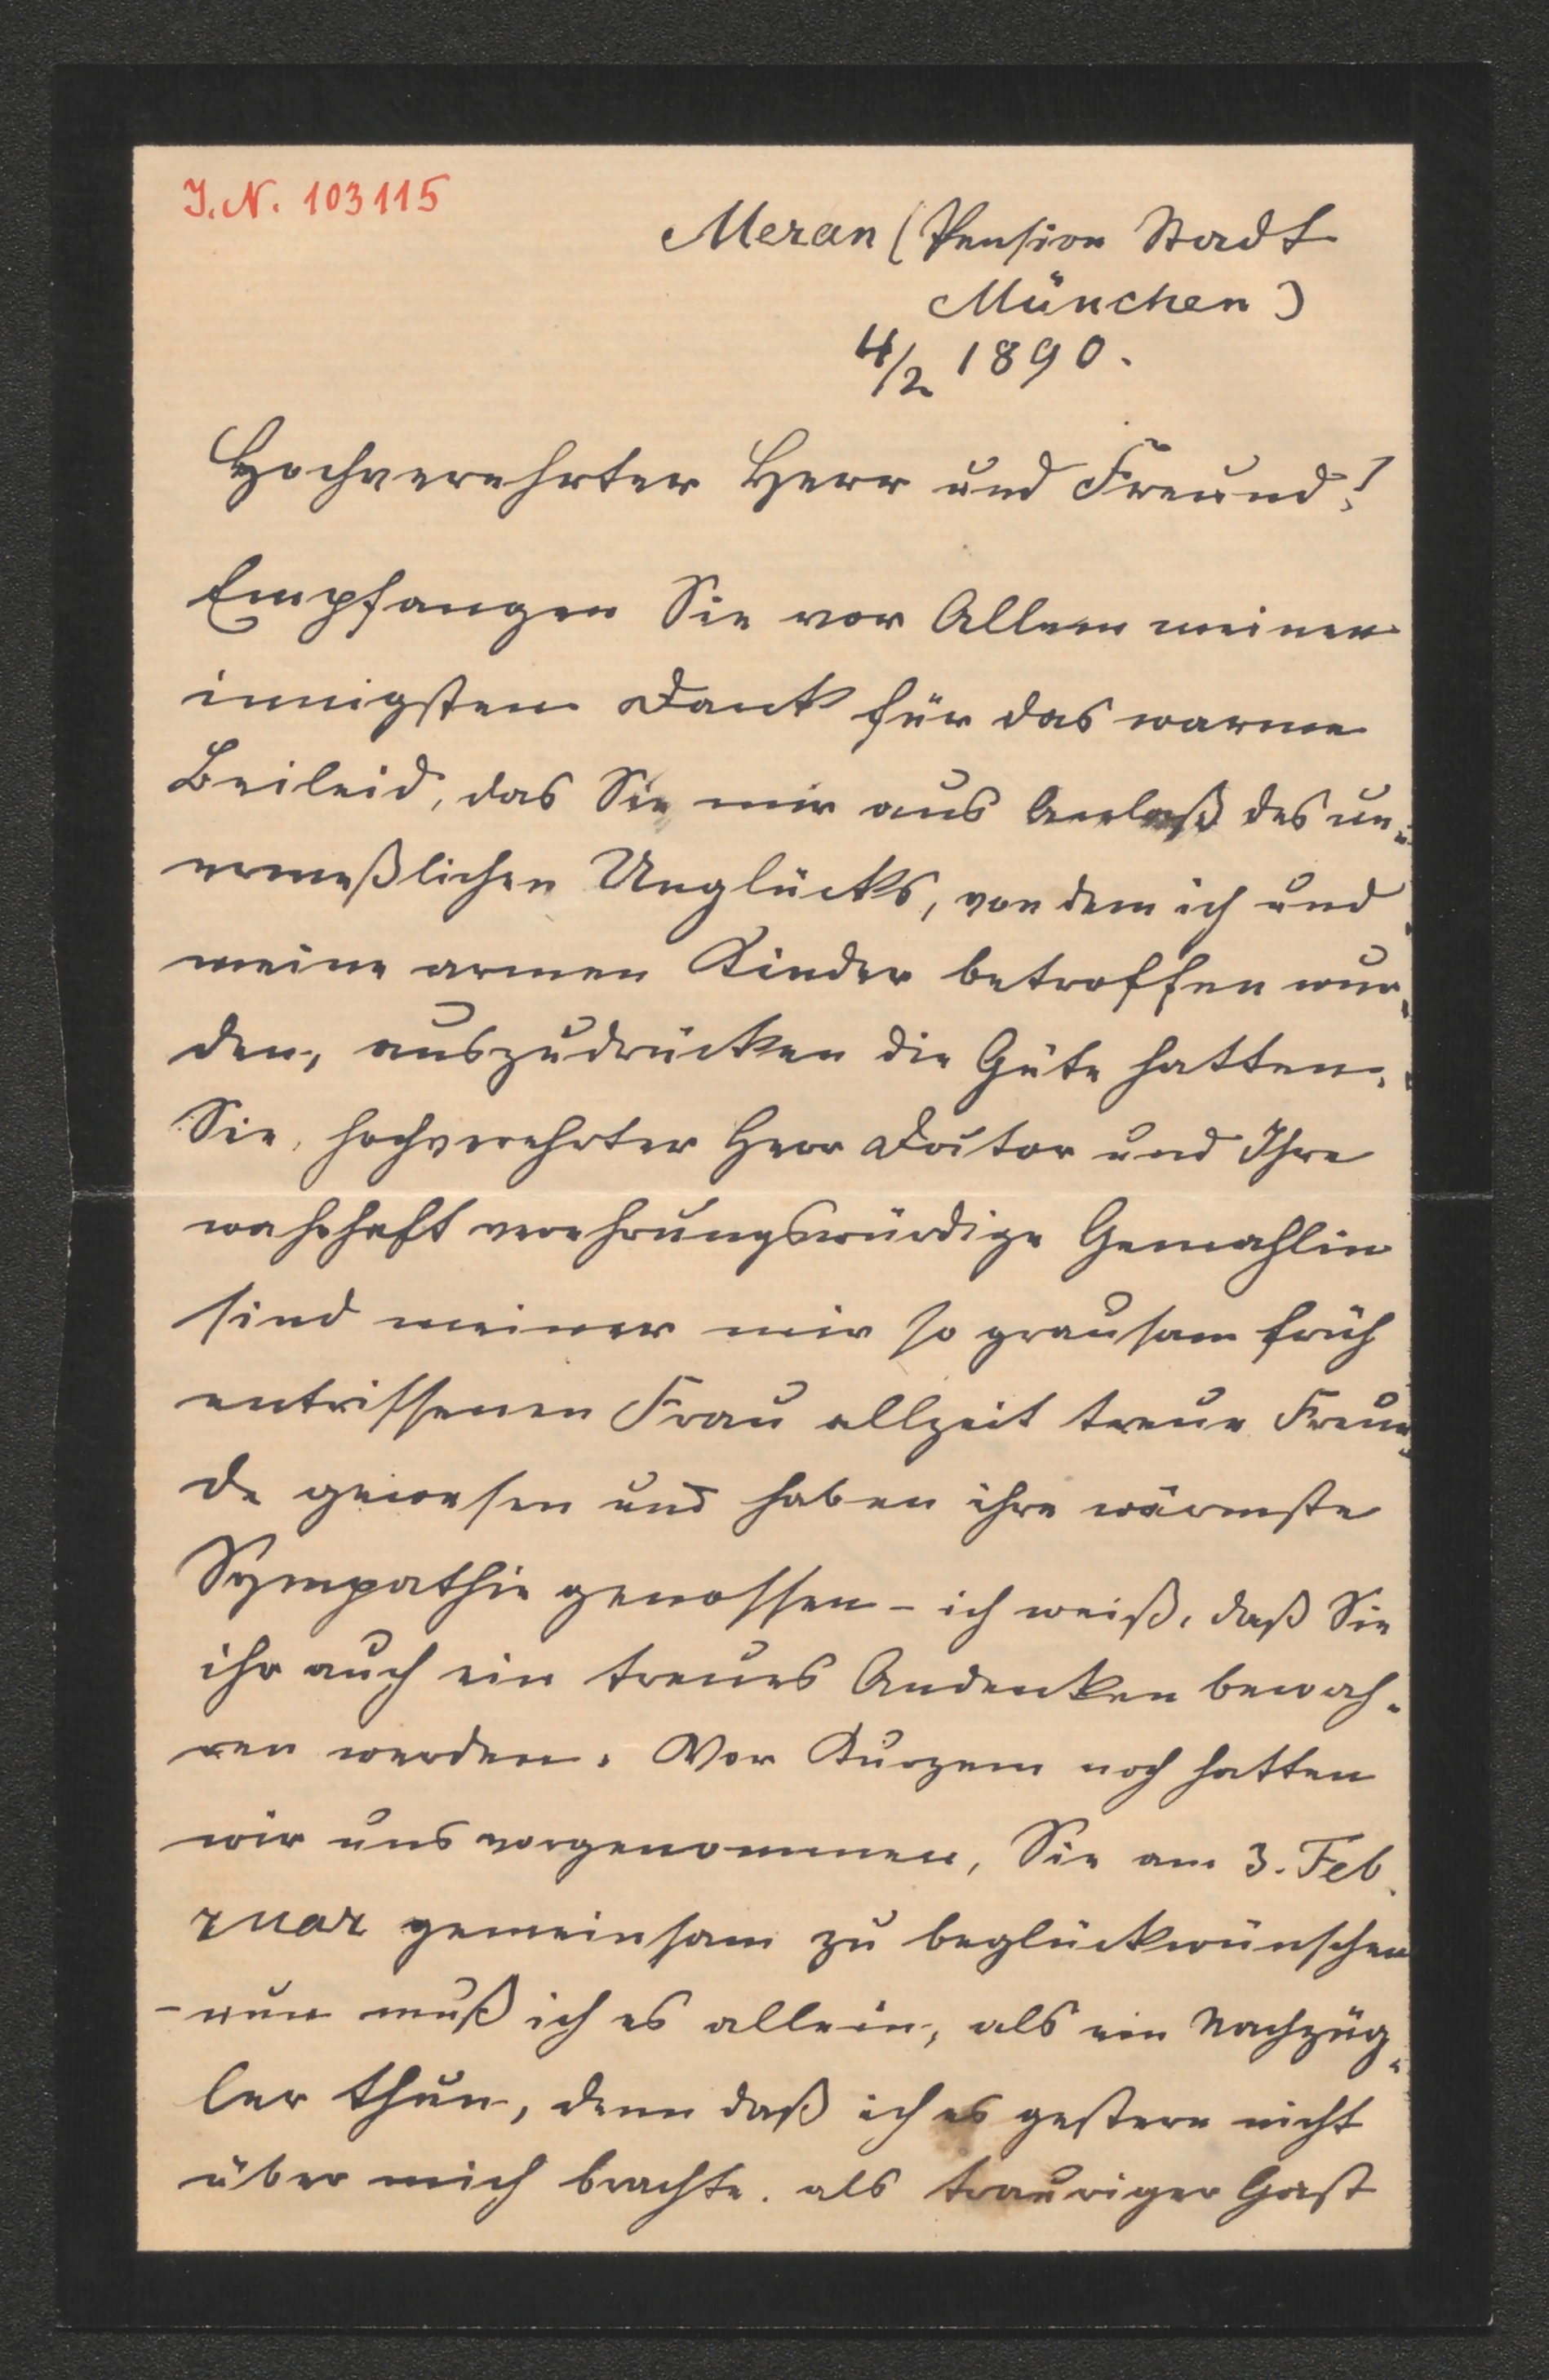 I. N. 103115
Meran (Pension Stadt
München)
4/2 1890.
Hochverehrter Herr und Freund!
Empfangen Sie vor Allem meinen
innigsten Dank für das warme
Beileid, das Sie mir aus Anlaß des un-
ermeßlichen Unglücks, von dem ich und
meine armen Kinder betroffen wur-
den, auszudrücken die Güte hatten.
Sie, hochverehrter Herr Doctor und Ihre
wahrhaft verehrungswürdige Gemahlin
sind meiner mir so grausam früh
entrissenen Frau allzeit treue Freun-
de gewesen und haben ihre wärmste
Sympathie genossen – ich weiß, daß Sie
ihr auch ein treues Andenken bewah-
ren werden. Vor Kurzem noch hatten
wir uns vorgenommen, Sie am 3. Feb-
ruar gemeinsam zu beglückwünschen
– nun muß ich es allein, als ein Nachzüg-
ler thun, denn daß ich es gestern nicht
über mich brachte, als trauriger Gast